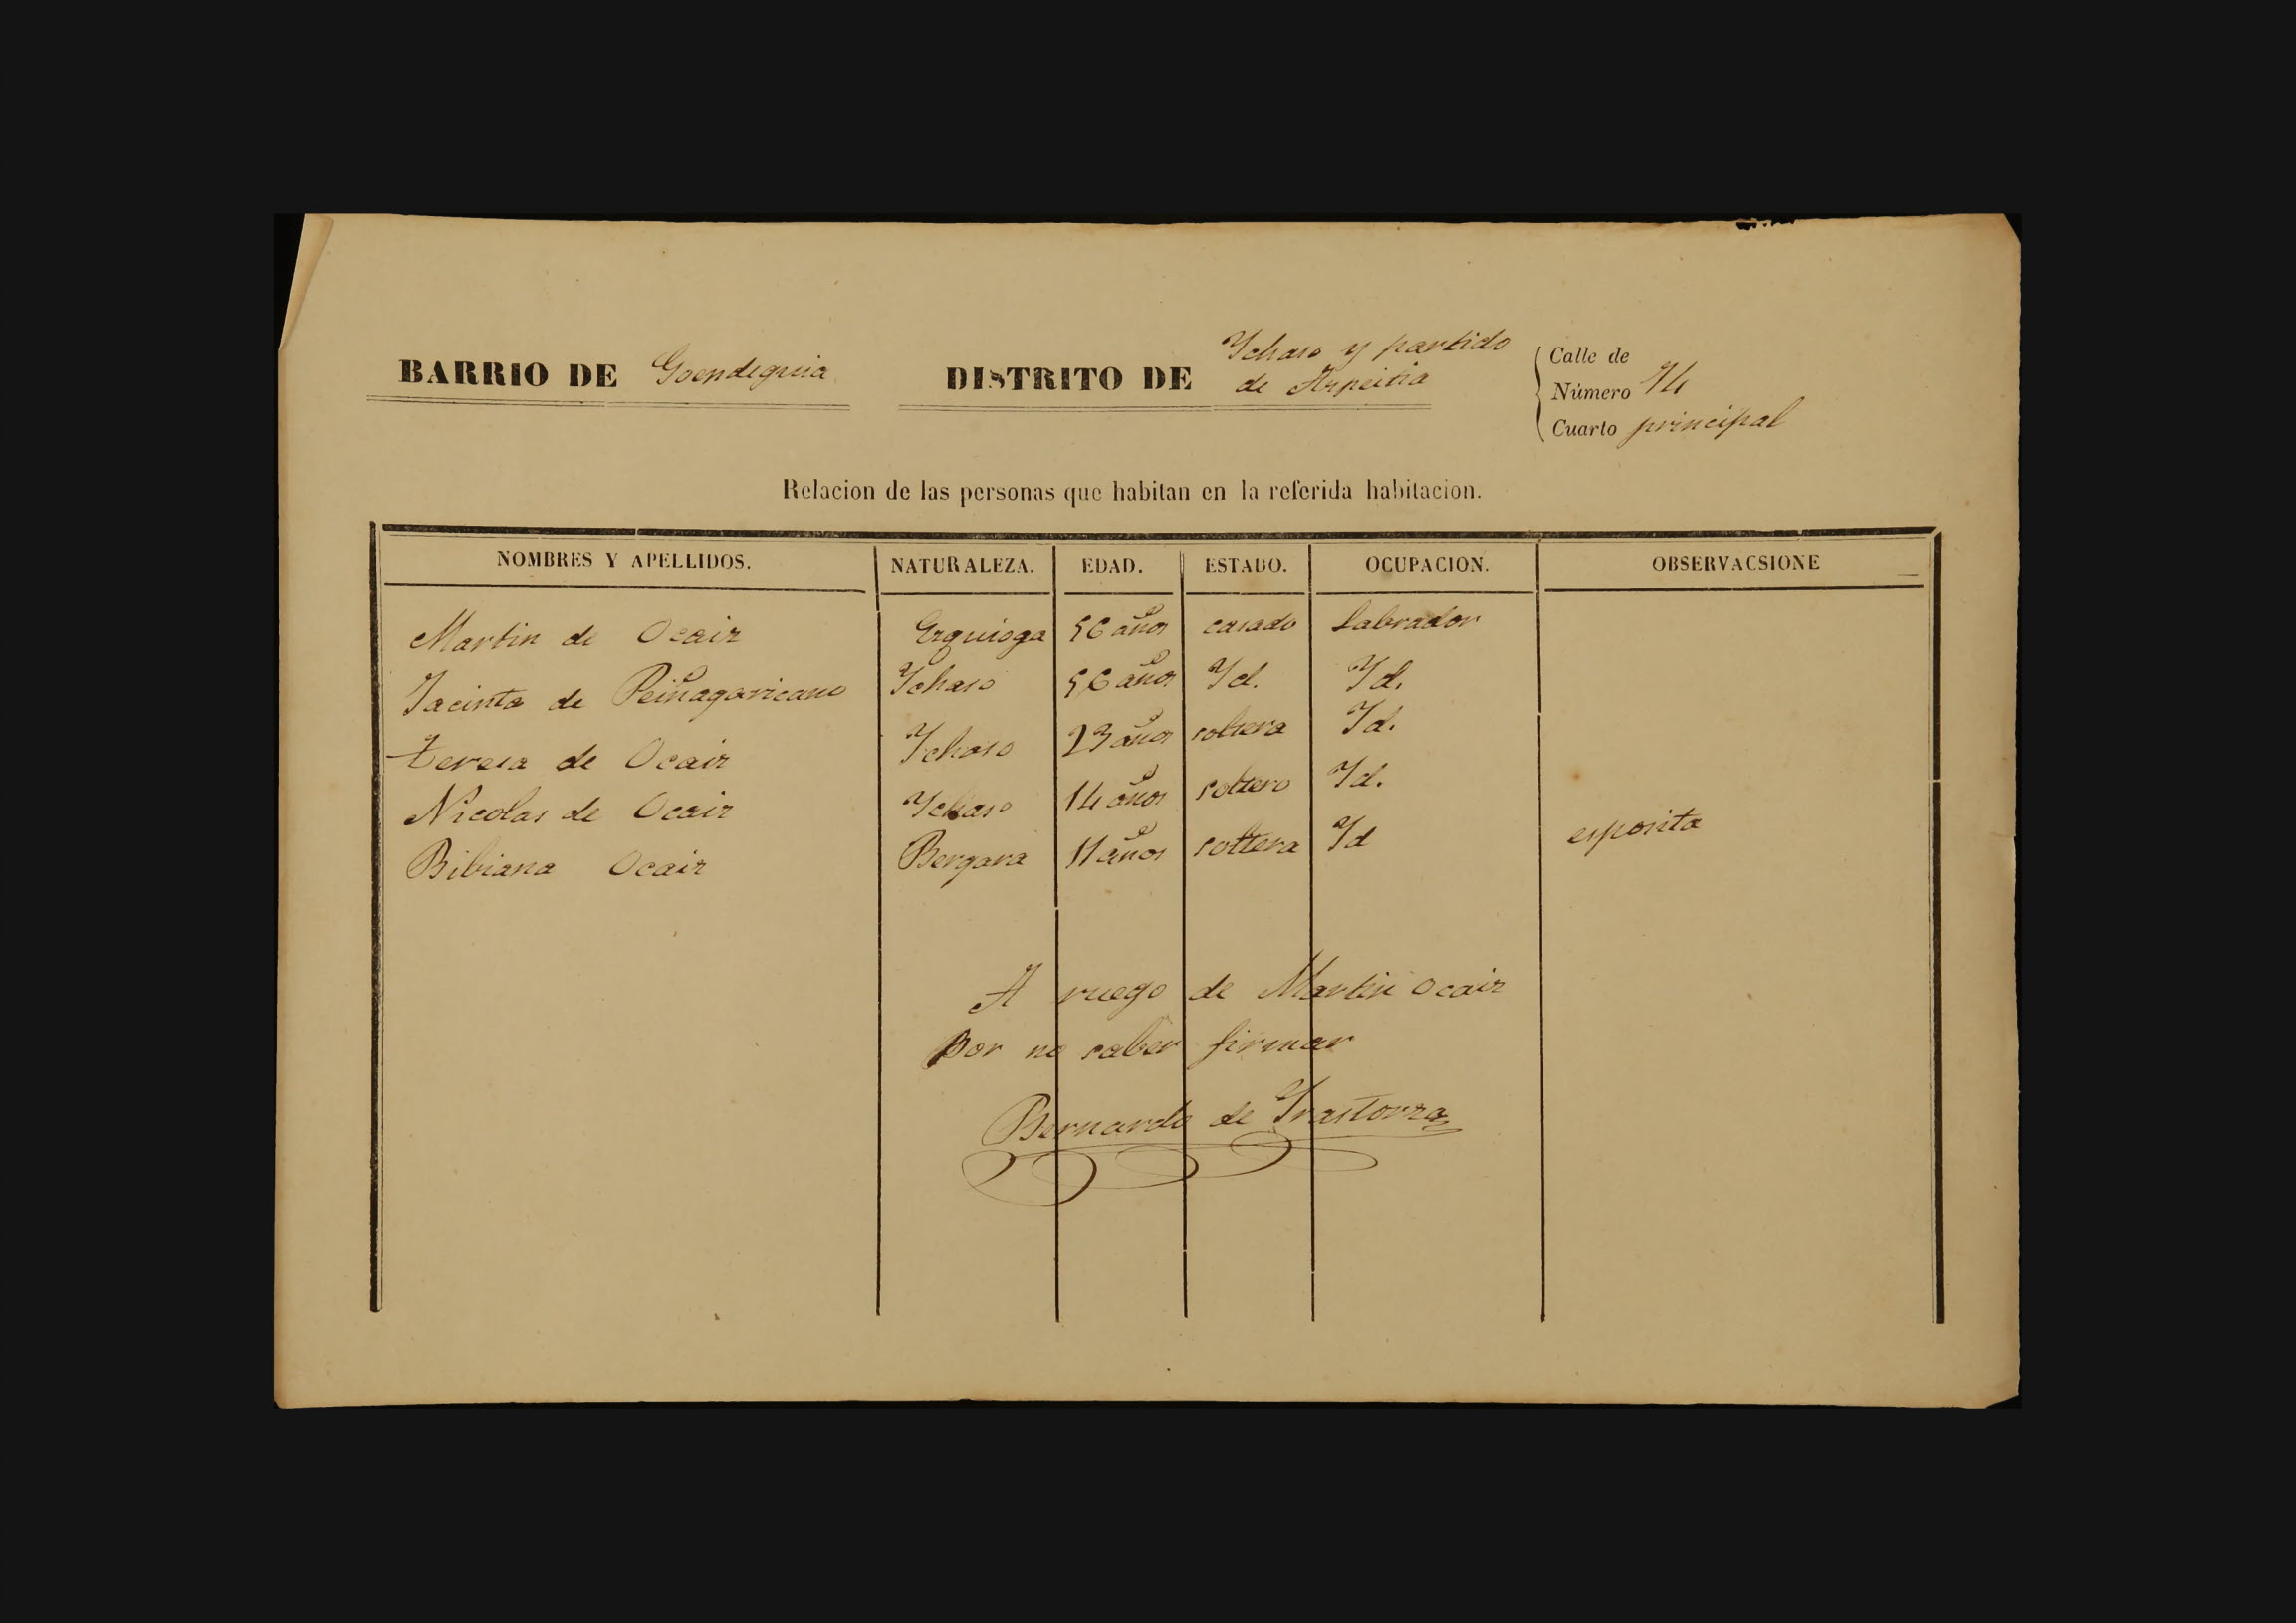 BARRIO DE Goendeguia
DISTRITO DE Ychaso y partido
de Azpeitia
Calle de
Número 14
Cuarto principal
Relacion de las personas que habitan en la referida habitacion.
NOMBRES Y APELLIDOS. NATURALEZA. EDAD. ESTADO. OCUPACION. OBSERVACSIONE
Martin de Ocaiz Ezquioga 56 años casado Labrador
Jacinta de Peiñagaricano Ychaso 56 años Yd. Yd.
teresa de Ocaiz Ychaso 23 años soltera Yd.
Nicolas de Ocaiz Ychaso 14 años soltero Yd.
Bibiana Ocaiz Bergara 11 años soltera Yd esposita
A ruego de Martin Ocaiz
Por no saber firmar
Bernardo de Yrastorza